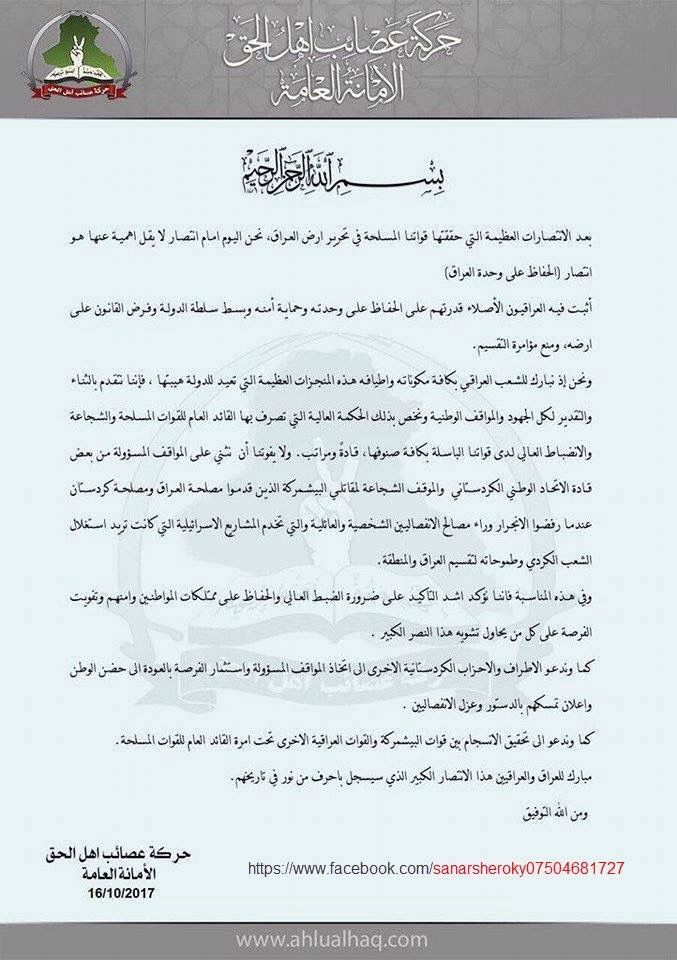 حركة عصائب اهل الحق
الأمانة العامة
حركة عصائب اهل الحق
بسم الله الرحمن الرحيم
بعد الانتصارات العظيمة التي حققتها قواتنا المسلحة في تحرير ارض العراق، نحن اليوم امام انتصار لا يقل اهمية عنها هو
انتصار (الحفاظ على وحدة العراق)
أثبت فيه العراقيون الأصلاء قدرتهم على الحفاظ على وحدته وحماية أمنه وبسط سلطة الدولة وفرض القانون على
ارضه، ومنع مؤامرة التقسيم.
ونحن إذ نبارك للشعب العراقي بكافة مكوناته واطيافه هذه المنجزات العظيمة التي تعيد للدولة هيبتها ، فإننا نتقدم بالثناء
والتقدير لكل الجهود والمواقف الوطنية ونخص بذلك الحكمة العالية التي تصرف بها القائد العام للقوات المسلحة والشجاعة
والانضباط العالي لدى قواتنا الباسلة بكافة صنوفها، قادةً ومراتب. ولا يفوتنا أن نثني على المواقف المسؤولة من بعض
قادة الاتحاد الوطني الكردستاني والموقف الشجاعة لمقاتلي البيشمركة الذين قدموا مصلحة العراق ومصلحة كردستان
عندما رفضوا الانجرار وراء مصالح الانفصاليين الشخصية والعائلية والتي تخدم المشاريع الاسرائيلية التي كانت تريد استغلال
الشعب الكردي وطموحاته لتقسيم العراق والمنطقة.
وفي هذه المناسبة فاننا نؤكد اشد التأكيد على ضرورة الضبط العالي والحفاظ على ممتلكات المواطنين وامنهم وتفويت
الفرصة على كل من يحاول تشويه هذا النصر الكبير .
كما وندعو الاطراف والاحزاب الكردستانية الاخرى الى اتخاذ المواقف المسؤولة واستثمار الفرصة بالعودة الى حضن الوطن
واعلان تمسكهم بالدستور وعزل الانفصاليين .
كما وندعو الى تحقيق الانسجام بين قوات البيشمركة والقوات العراقية الاخرى تحت امرة القائد العام للقوات المسلحة.
مبارك للعراق والعراقيين هذا الانتصار الكبير الذي سيسجل باحرف من نور في تاريخهم.
ومن الله التوفيق
حركة عصائب اهل الحق
الأمانة العامة
16/10/2017
https://www.facebook.com/sanarsheroky07504681727
www.ahlualhaq.com